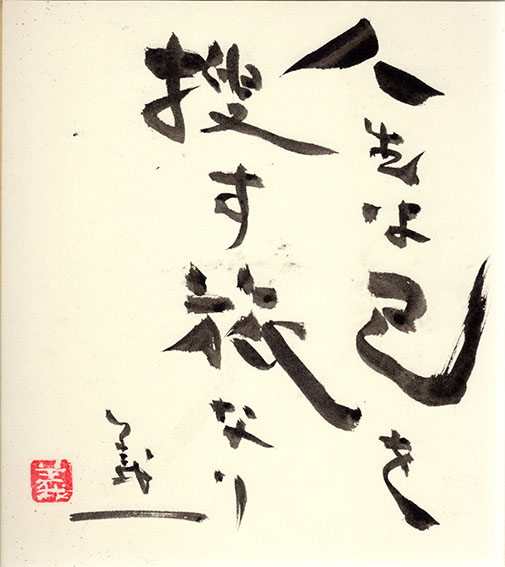 人生は己を
捜す旅なり
義一